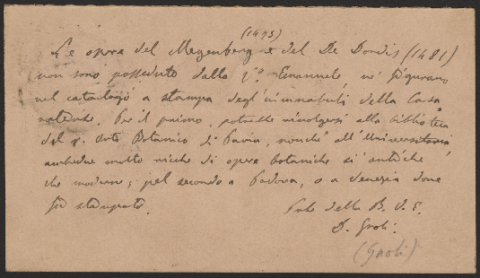 (1475)
Le opere del Megenberg e del De Dondis (1481)
non sono possedute dalla V.º Emanuele, nè figurano
nel catalogo a stampa degl'incunabuli della Casa
natense. Per il primo, potrebbe rivolgersi alla biblioteca
del r. Orto Botanico di Pavia, nonchè all'Universitaria,
ambedue molto ricche di opere botaniche sì antiche
che moderne; pel secondo a Padova, o a Venezia dove
fu stampato.
Pref. della B. V. E.
D. Gnoli.
(Gnoli)